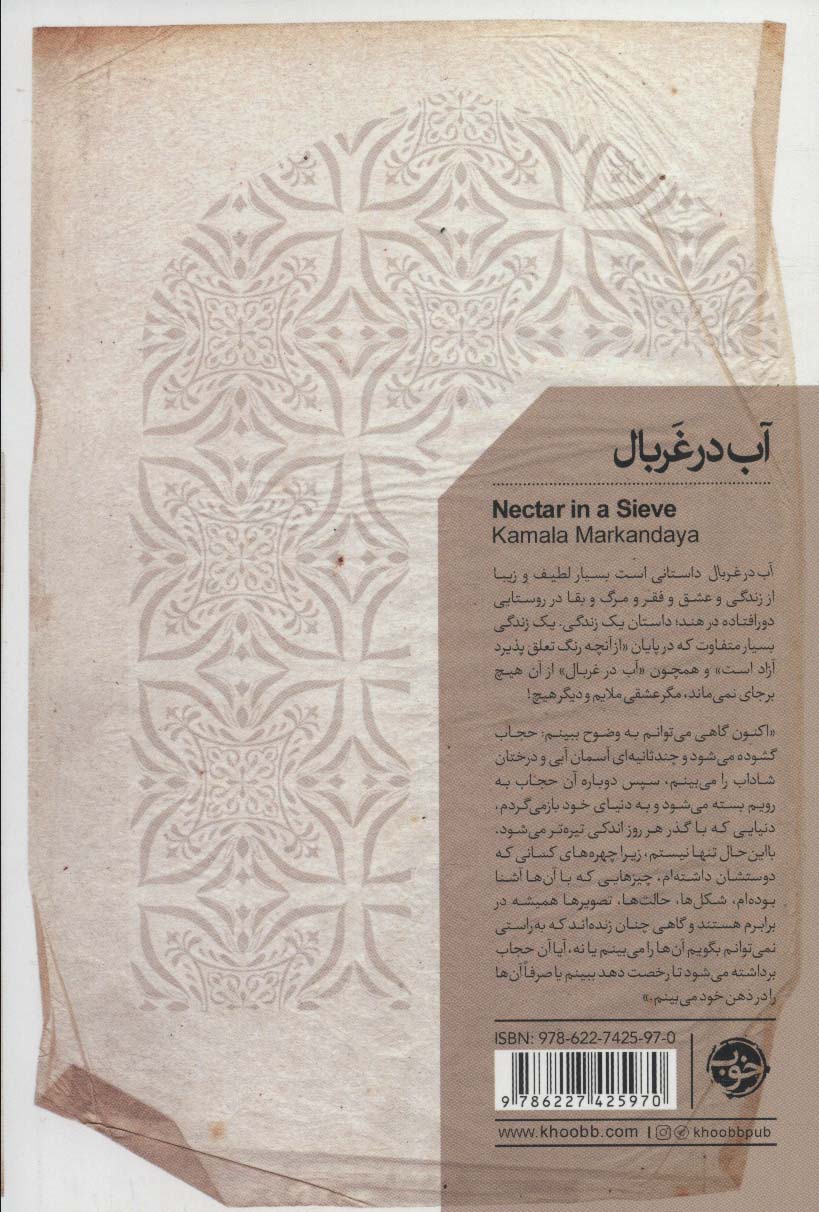 آب در غَربال
Nectar in a Sieve
Kamala Markandaya
آب در غربال داستانی است بسیار لطیف و زیبا
از زندگی و عشق و فقر و مرگ و بقا در روستایی
دورافتاده در هند؛ داستان یک زندگی. یک زندگی
بسیار متفاوت که در پایان «از آنچه رنگ تعلق پذیرد
آزاد است» و همچون «آب در غربال» از آن هیچ
برجای نمی‌ماند، مگر عشقی ملایم و دیگر هیچ!
«اکنون گاهی می‌توانم به وضوح ببینم: حجاب
گشوده می‌شود و چند ثانیه‌ای آسمان آبی و درختان
شاداب را می‌بینم، سپس دوباره آن حجاب به
رویم بسته می‌شود و به دنیای خود بازمی‌گردم،
دنیایی که با گذر هر روز اندکی تیره‌تر می‌شود.
بااین‌حال تنها نیستم، زیرا چهره‌های کسانی که
دوستشان داشته‌ام، چیزهایی که با آن‌ها آشنا
بوده‌ام، شکل‌ها، حالت‌ها، تصویرها همیشه در
برابرم هستند و گاهی چنان زنده‌اند که به‌راستی
نمی‌توانم بگویم آن‌ها را می‌بینم یا نه، آیا آن حجاب
برداشته می‌شود تا رخصت دهد ببینم یا صرفاً آن‌ها
را در ذهن خود می‌بینم.»
ISBN: 978-622-7425-97-0
خوب
9 786227 425970
www.khoobb.com | khoobbpub